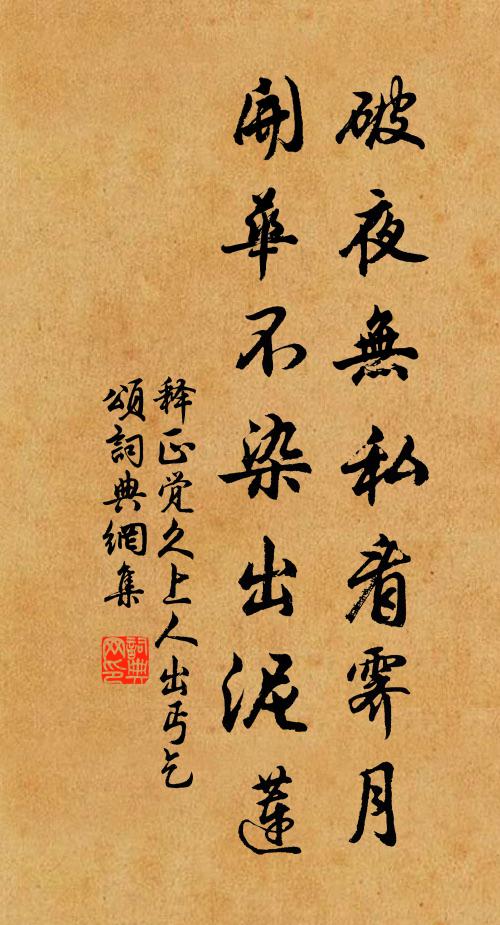 破夜無私看霽月
開華不染出泥蓮
释正觉久上人出丐乞
頌詞典網集
詞典网印